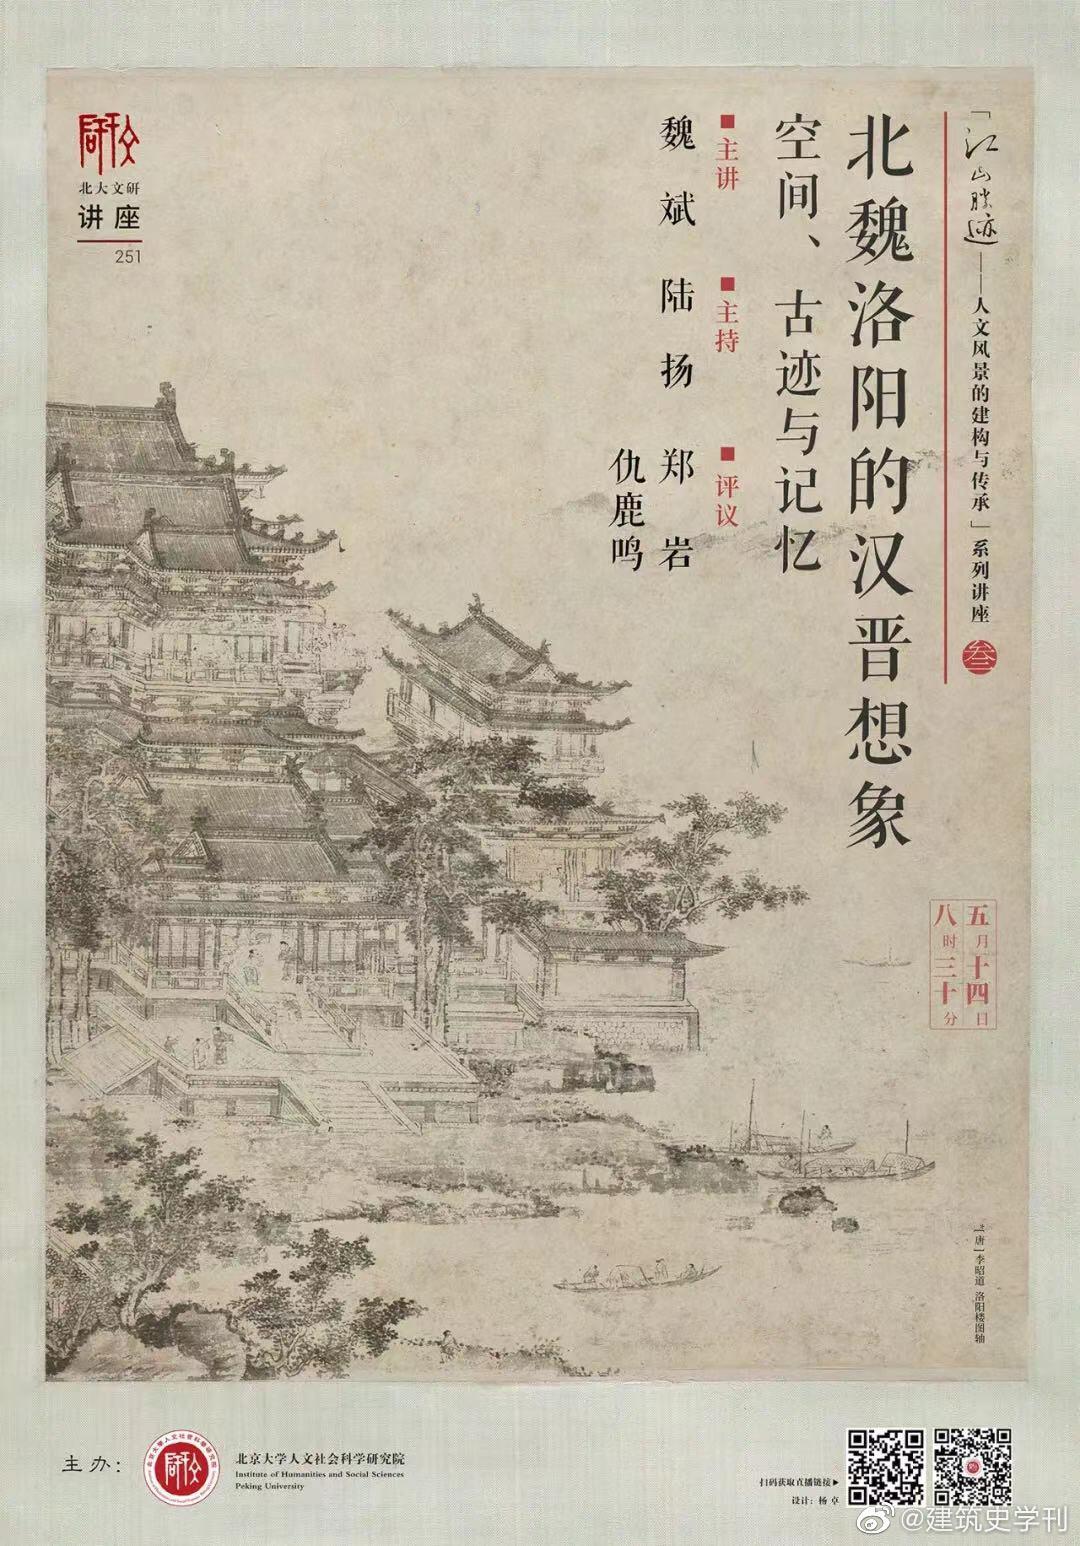 「江山胜迹——人文风景的建构与传承」系列讲座
叁
北魏洛阳的汉晋想象
空间、古迹与记忆
■主讲
魏斌
■主持
陆扬
■评议
郑岩
仇鹿鸣
北大文研
讲座
251
五月十四日
八时三十分
[唐]李昭道 洛阳楼图轴
主办：
北京大学人文社会科学研究院
Institute of Humanities and Social Sciences
Peking University
扫码获取直播链接▶
设计：杨卓
@建筑史学刊